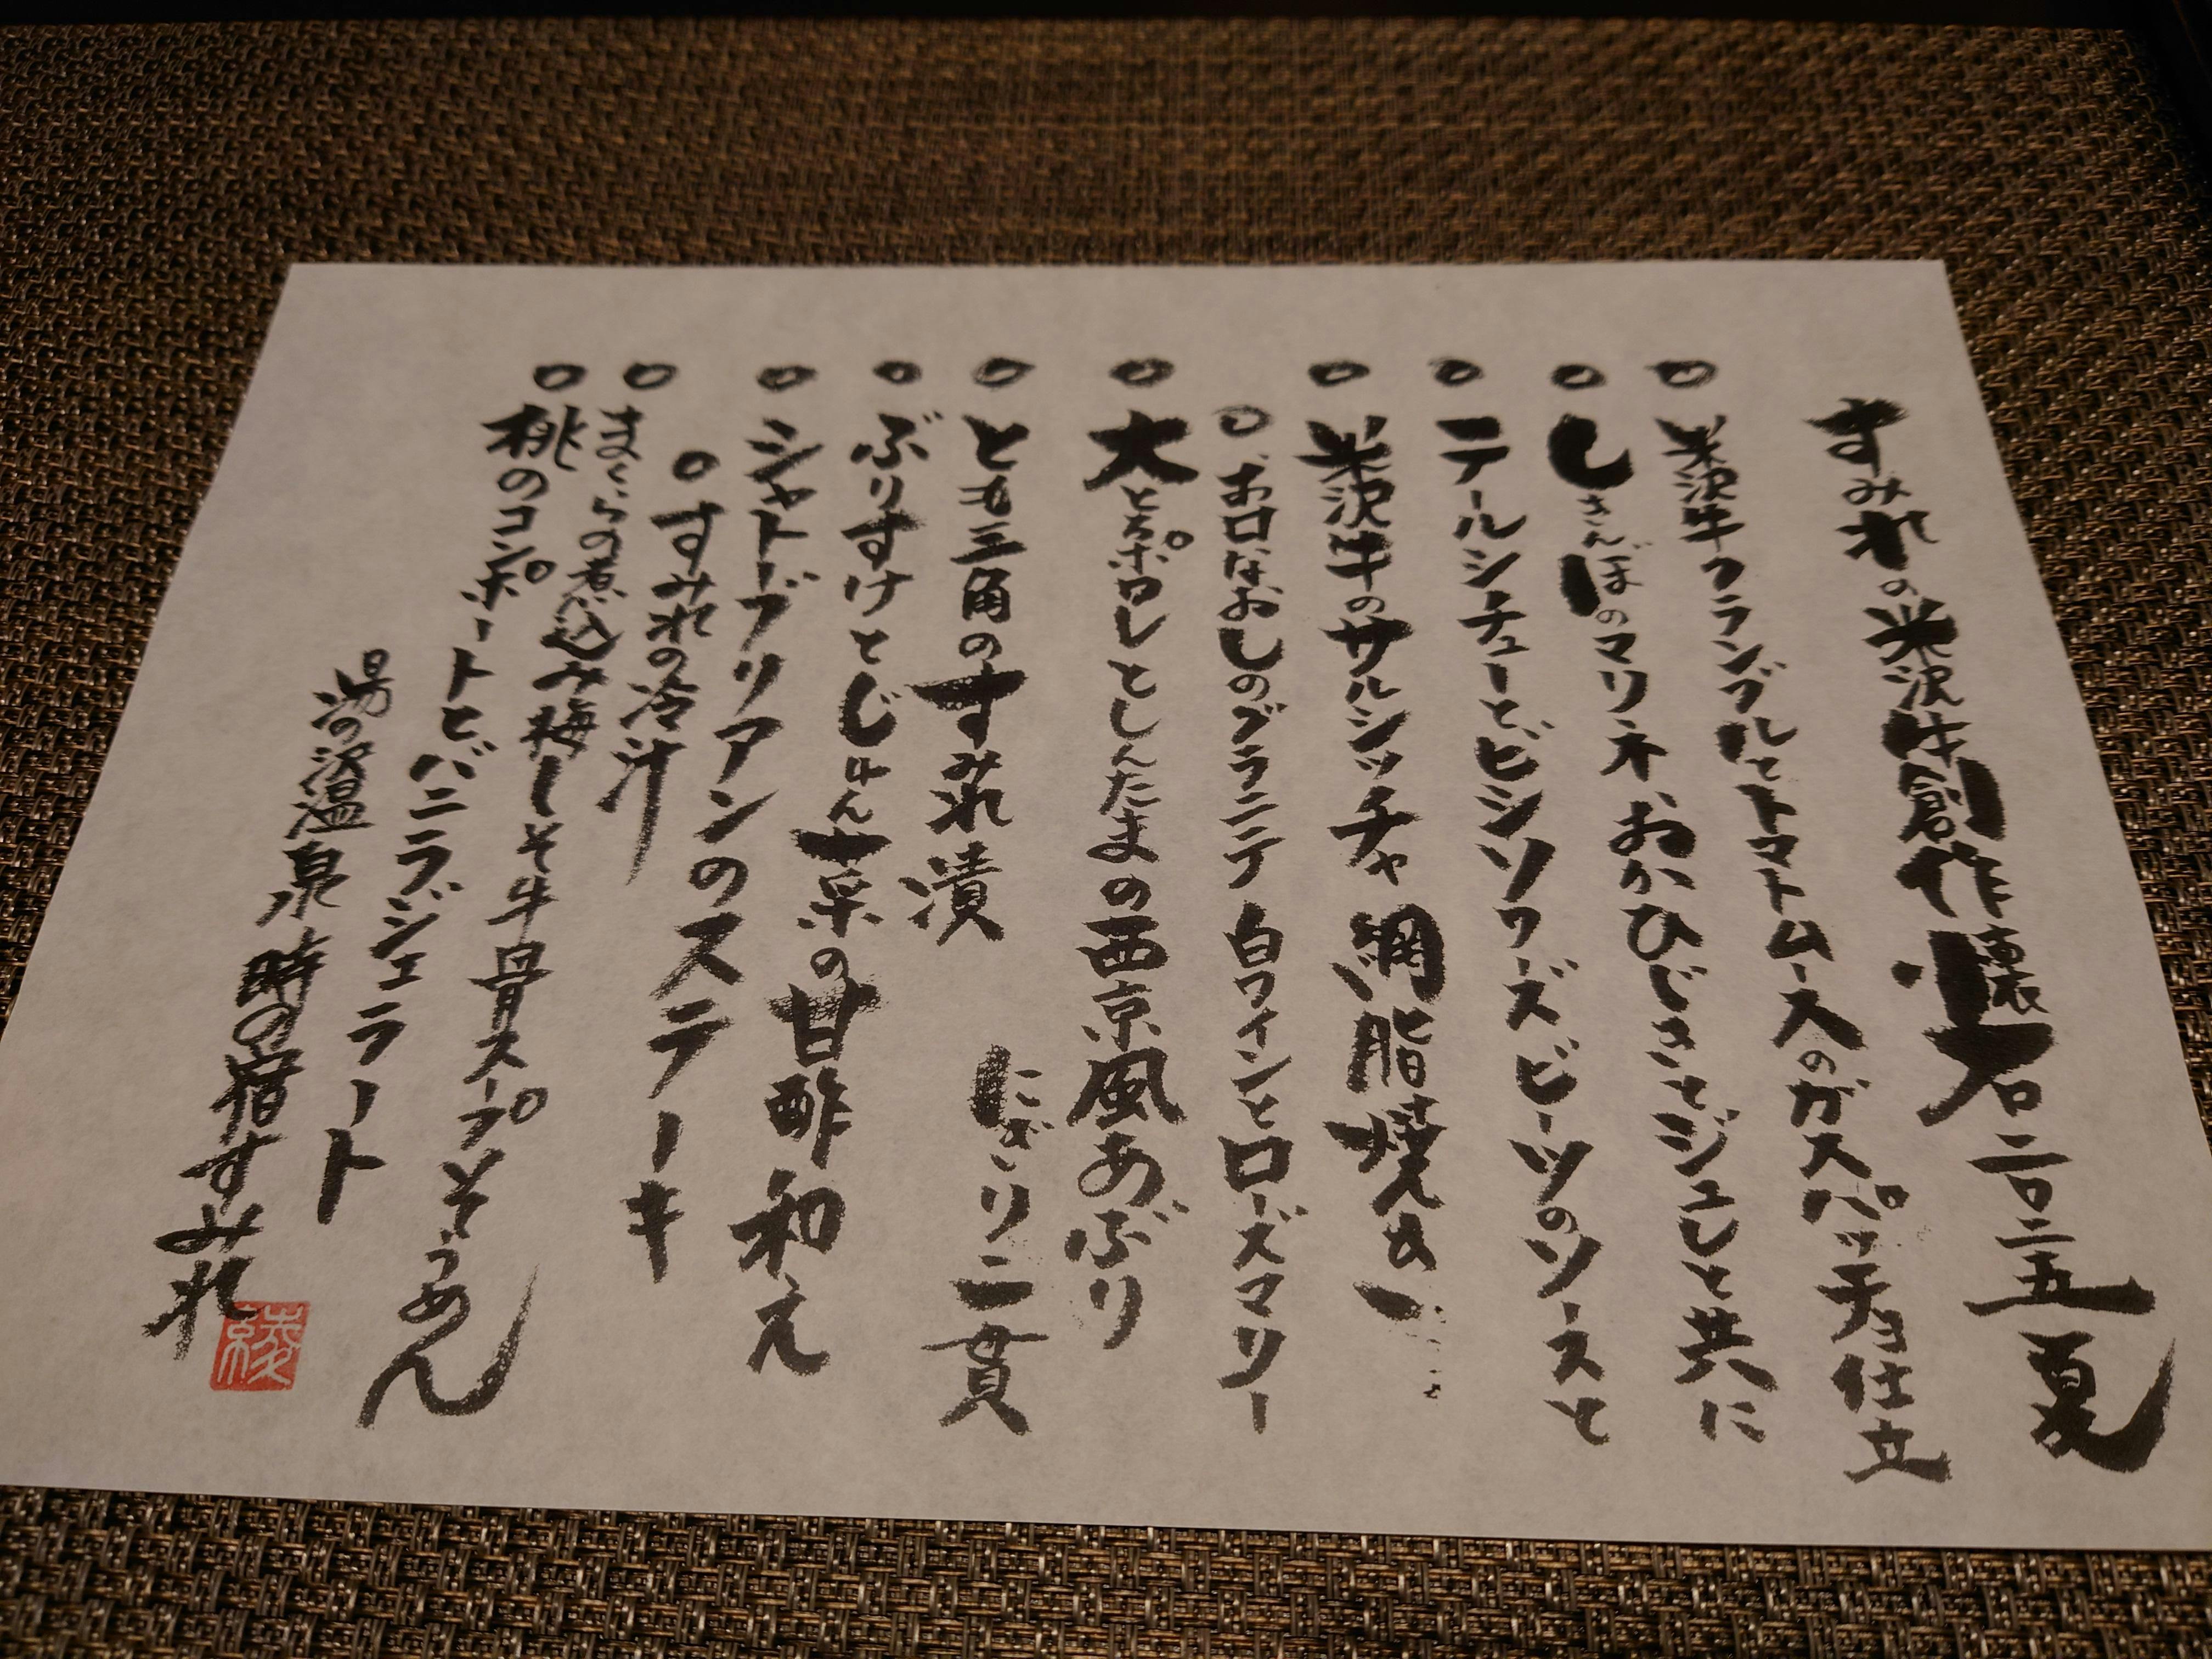 すみれの米沢牛創作懐石二〇二五夏
○米沢牛クランブルとトマトムースのガスパッチョ仕立
○しきんぼのマリネ、おかひじきとジュレと共に
○テールシチューとビシソワーズビーツのソースと
○米沢牛のサルシッチャ網脂焼き
○お口なおしのグラニテ白ワインとローズマリー
○大とろポワレとしんたまの西京風あぶり
○とも三角のすみれ漬 にぎり二貫
○ぶりすけとじゅん菜の甘酢和え
○シャトーブリアンのステーキ
○すみれの冷汁
○まくらの煮込み梅しそ牛骨スープそうめん
○桃のコンポートとバニラジェラート
湯の沢温泉時の宿すみれ
綾